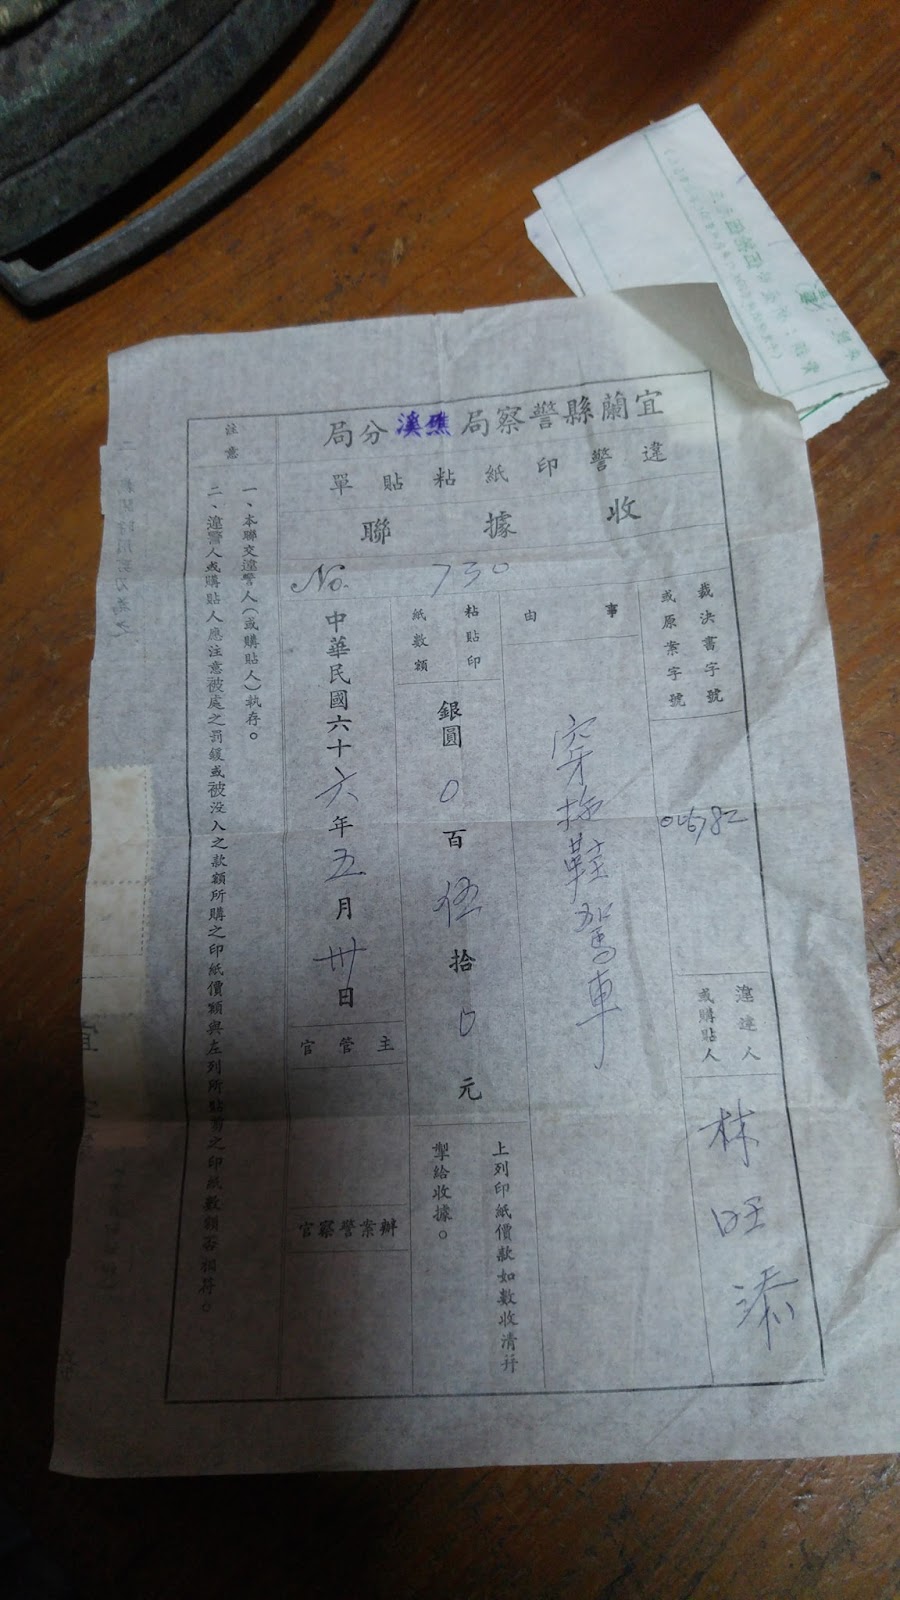 宜蘭縣警察局礁溪分局
違警印紙粘貼單
收據聯
No. 730
裁決書字號
或原案字號
違違人
或購貼人
林旺添
事由
穿拖鞋駕車
粘貼印
紙數額
銀圓0百伍拾0元
上列印紙價款如數收清并
掣給收據。
中華民國六十六年五月卅日
主管官
辦案警察官
注意
一、本聯交違警人(或購貼人)執存。
二、違警人或購貼人應注意被處之罰鍰或被沒入之款額所購之印紙價額與左列所貼剪之印紙數額否相符。